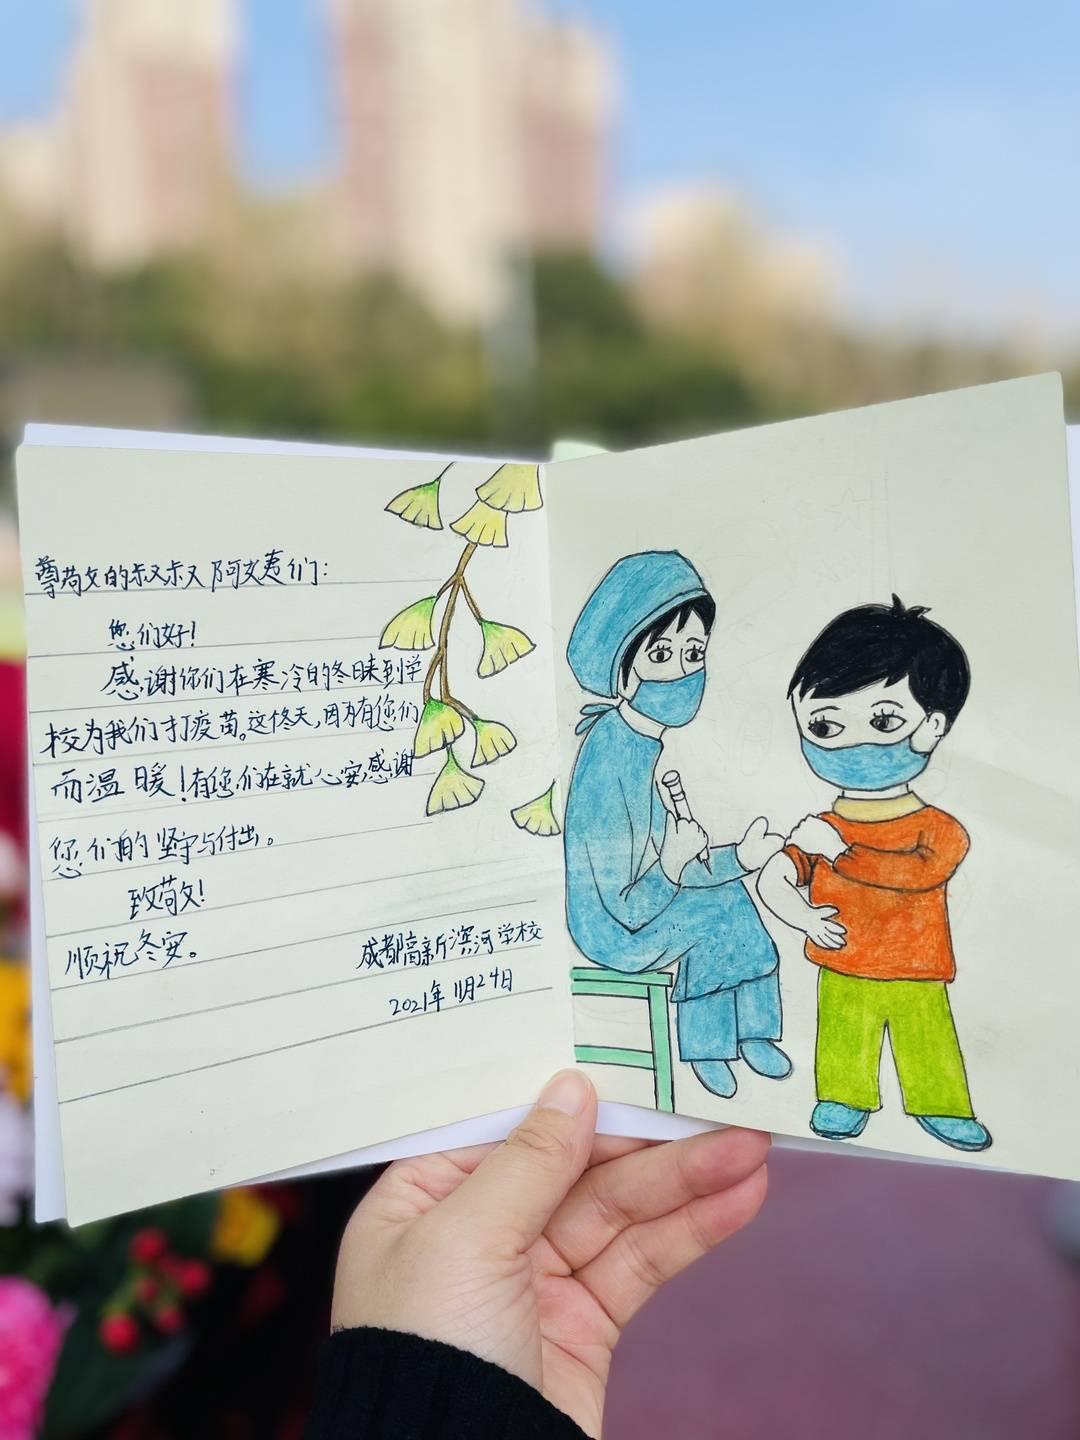 尊敬的叔叔阿姨们：
您们好！
感谢你们在寒冷的冬日来到学
校为我们打疫苗。这冬天，因为有您们
而温暖！有您们在就心安，感谢
您们的坚守与付出。
致敬！
顺祝冬安。
成都高新滨河学校
2021年11月24日